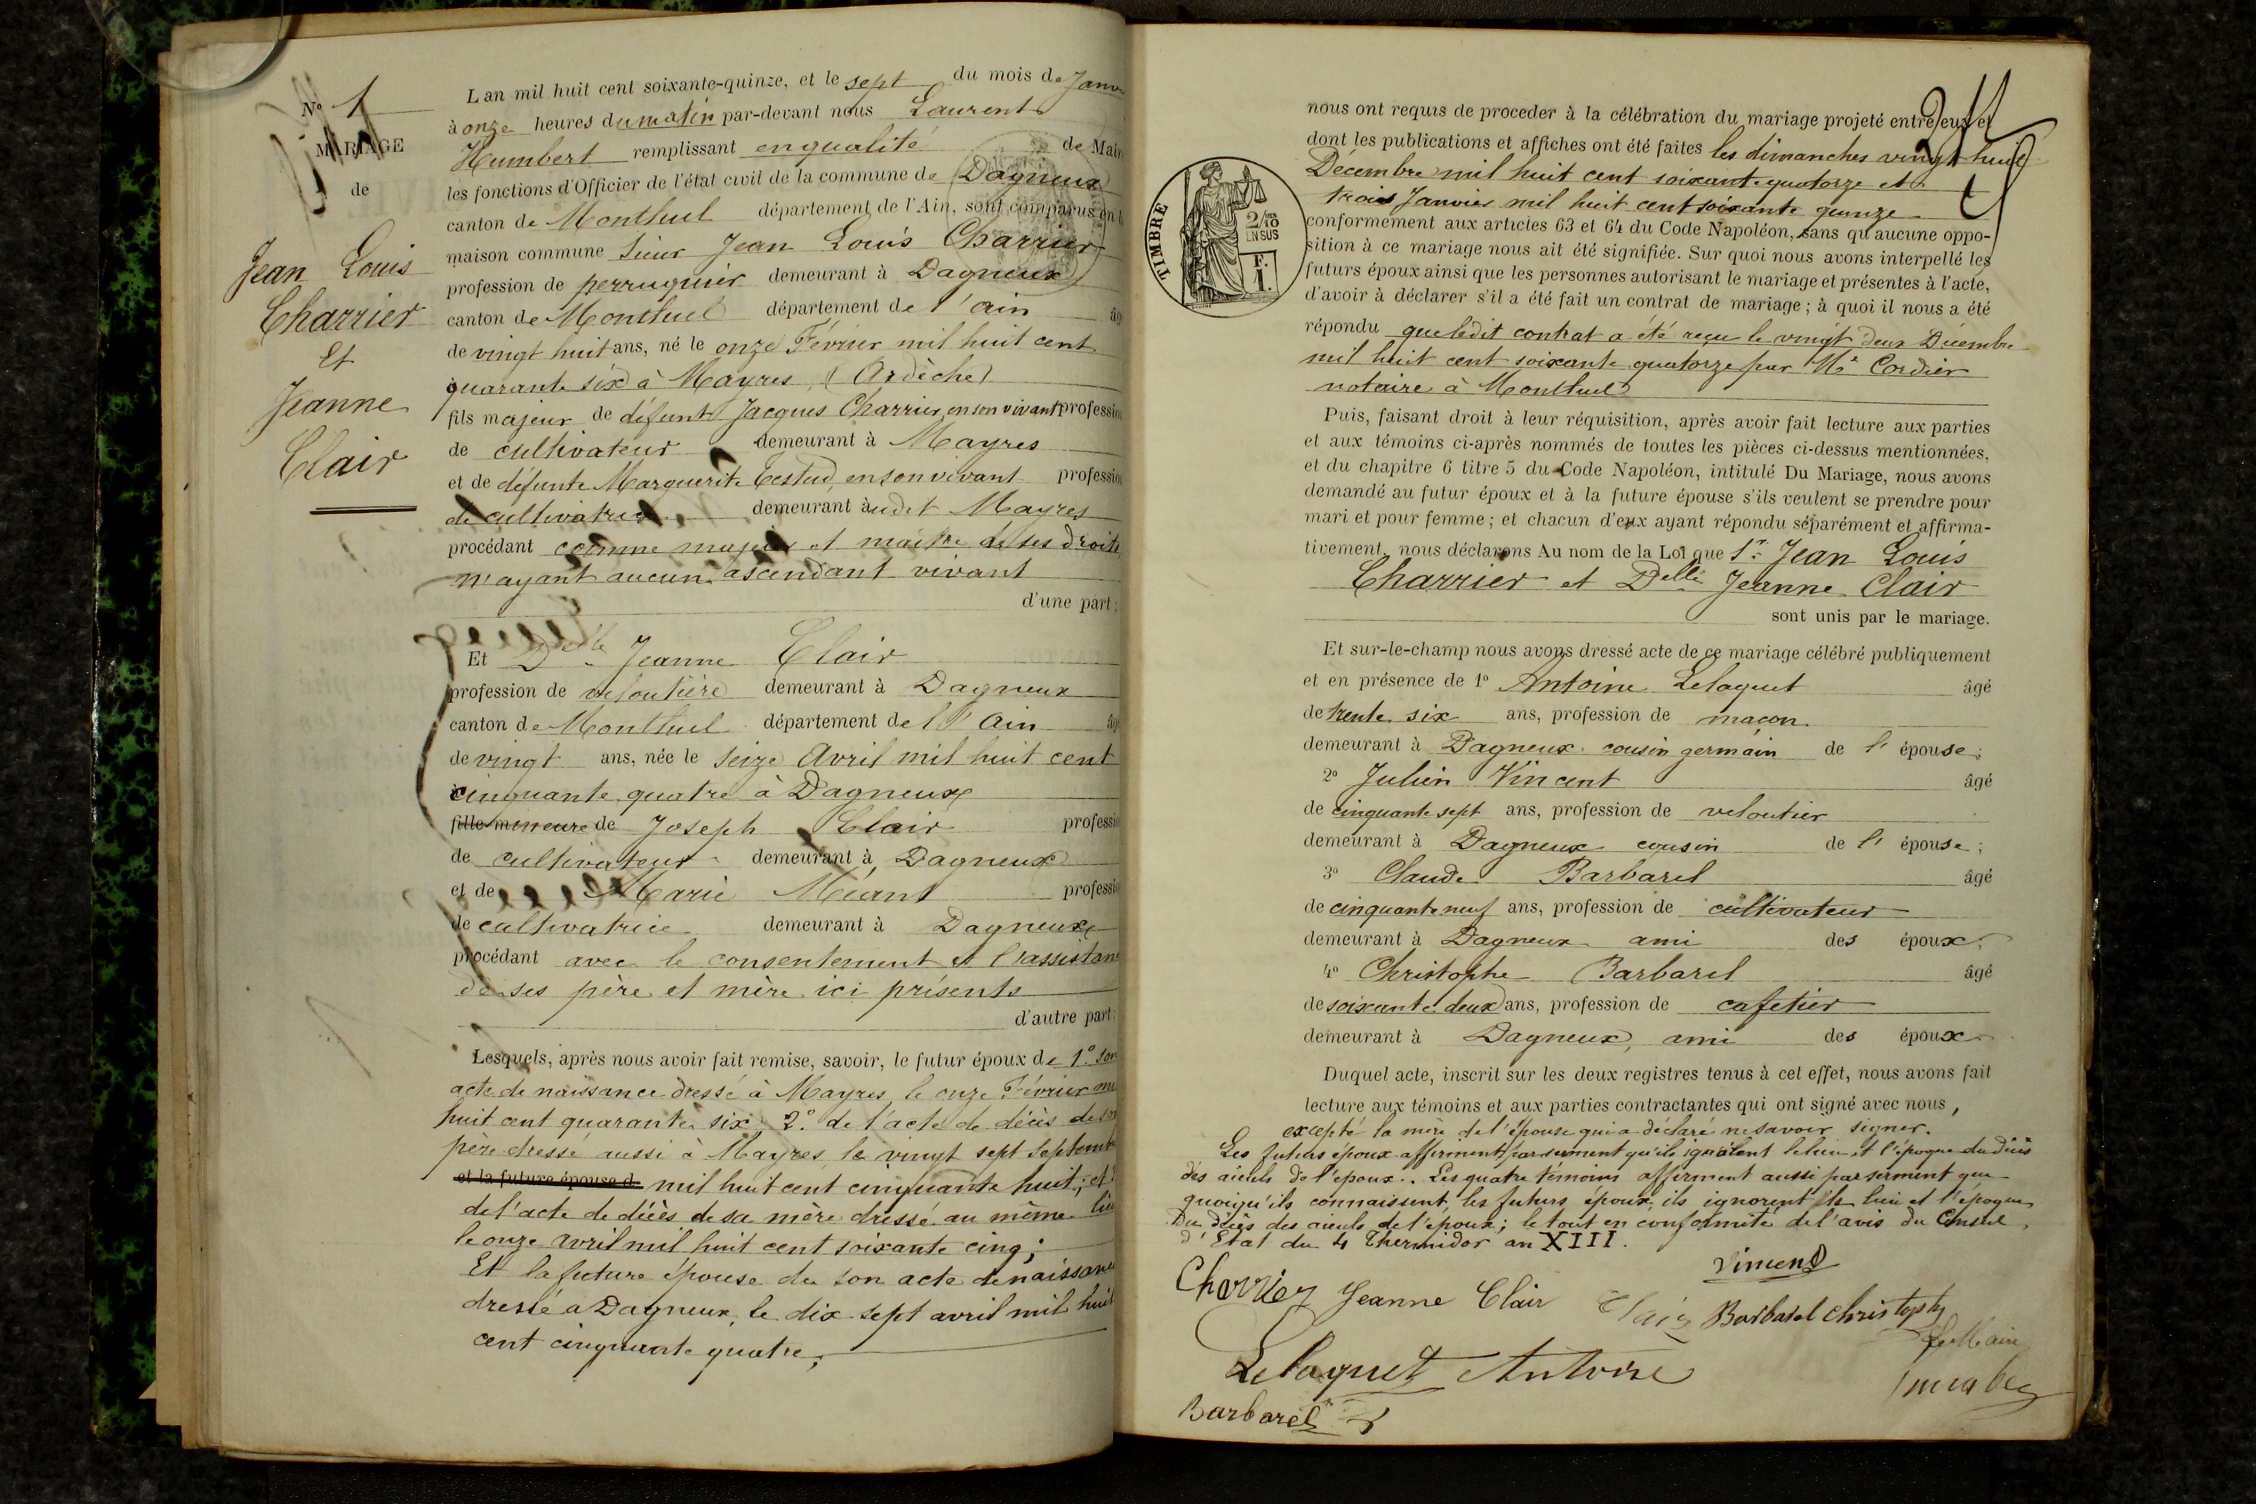 N° 1
MARIAGE
de
Jean Louis
Charrier
Et
Jeanne
Clair
L'an mil huit cent soixante-quinze, et le sept du mois de Janv
à onze heures du matin par-devant nous Laurent
Humbert remplissant en qualité de Maire
les fonctions d'Officier de l'état civil de la commune de Dagneux
canton de Montluel département de l'Ain, sont comparus en l
maison commune Sieur Jean Louis Charrier
profession de perruquier demeurant à Dagneux
canton de Montluel département de l'ain âg
de vingt huit ans, né le onze Février mil huit cent
quarante six à Mayres (Ardèche)
fils majeur de défunt Jacques Charrier, en son vivant profession
de cultivateur demeurant à Mayres
et de défunte Marguerite Testud, en son vivant profession
de cultivatrice demeurant à udit Mayres
procédant comme majeur et maître de ses droits
n'ayant aucun ascendant vivant
d'une part;
Et Dlle Jeanne Clair
profession de veloutière demeurant à Dagneux
canton de Montluel département de l'Ain âg
de vingt ans, née le seize Avril mil huit cent
cinquante quatre à Dagneux
fille mineure de Joseph Clair professio
de cultivateur demeurant à Dagneux
et de Marie professio
de cultivatrice demeurant à Dagneux
procédant avec le consentement et l'assistan
de ses père et mère ici présents
d'autre part:
Lesquels, après nous avoir fait remise, savoir, le futur époux de 1° son
acte de naissance dressé à Mayres, le onze Février mil
huit cent quarante six, 2° de l'acte de décès de son
père dressé aussi à Mayres, le vingt sept Septemb
et la future épouse d mil huit cent cinquante huit; et
de l'acte de décès de sa mère dressé au même lieu
le onze avril mil huit cent soixante cinq;
Et la future épouse de son acte de naissance
dressé à Dagneux, le dix-sept avril mil huit
cent cinquante quatre;
TIMBRE
2/10
EN SUS
F.
1.
nous ont requis de proceder à la célébration du mariage projeté entre eux et
dont les publications et affiches ont été faites les dimanches vingt huit
Décembre mil huit cent soixante quatorze et
trois Janvier mil huit cent soixante quinze
conformément aux articles 63 et 64 du Code Napoléon, sans qu'aucune oppo-
sition à ce mariage nous ait été signifiée. Sur quoi nous avons interpellé les
futurs époux ainsi que les personnes autorisant le mariage et présentes à l'acte,
d'avoir à déclarer s'il a été fait un contrat de mariage; à quoi il nous a été
répondu que ledit contrat a été reçu le vingt deux Décembre
mil huit cent soixante quatorze par Me Cordier
notaire à Montluel
Puis, faisant droit à leur réquisition, après avoir fait lecture aux parties
et aux témoins ci-après nommés de toutes les pièces ci-dessus mentionnées,
et du chapitre 6 titre 5 du Code Napoléon, intitulé Du Mariage, nous avons
demandé au futur époux et à la future épouse s'ils veulent se prendre pour
mari et pour femme; et chacun d'eux ayant répondu séparément et affirma-
tivement, nous déclarons Au nom de la Loi que Sr Jean Louis
Charrier et Delle Jeanne Clair
sont unis par le mariage.
Et sur-le-champ nous avons dressé acte de ce mariage célébré publiquement
et en présence de 1° Antoine Lelaquet âgé
de trente six ans, profession de maçon
demeurant à Dagneux cousin germain de l' épouse;
2° Julien Vincent âgé
de cinquante sept ans, profession de veloutier
demeurant à Dagneux cousin de l' épouse;
3° Claude Barbarel âgé
de cinquante neuf ans, profession de cultivateur
demeurant à Dagneux ami des époux;
4° Christophe Barbarel âgé
de soixante deux ans, profession de cafetier
demeurant à Dagneux, ami des époux
Duquel acte, inscrit sur les deux registres tenus à cet effet, nous avons fait
lecture aux témoins et aux parties contractantes qui ont signé avec nous,
excepté la mère de l'épouse qui a déclaré ne savoir signer.
Les futurs époux affirment par serment qu'ils ignorent le lieu et l'époque du décès
des aïeuls de l'époux. Les quatre témoins affirment aussi par serment que
quoiqu'ils connaissent les futurs époux, ils ignorent le lieu et l'époque
du décès des aïeuls de l'époux; le tout en conformité de l'avis du Conseil
d'Etat du 4 Thermidor an XIII.
Vincent
Charrier Jeanne Clair Clair Barbarel Christophe
Le Maire
Lelaquet Antoine
Humbert
Barbarel